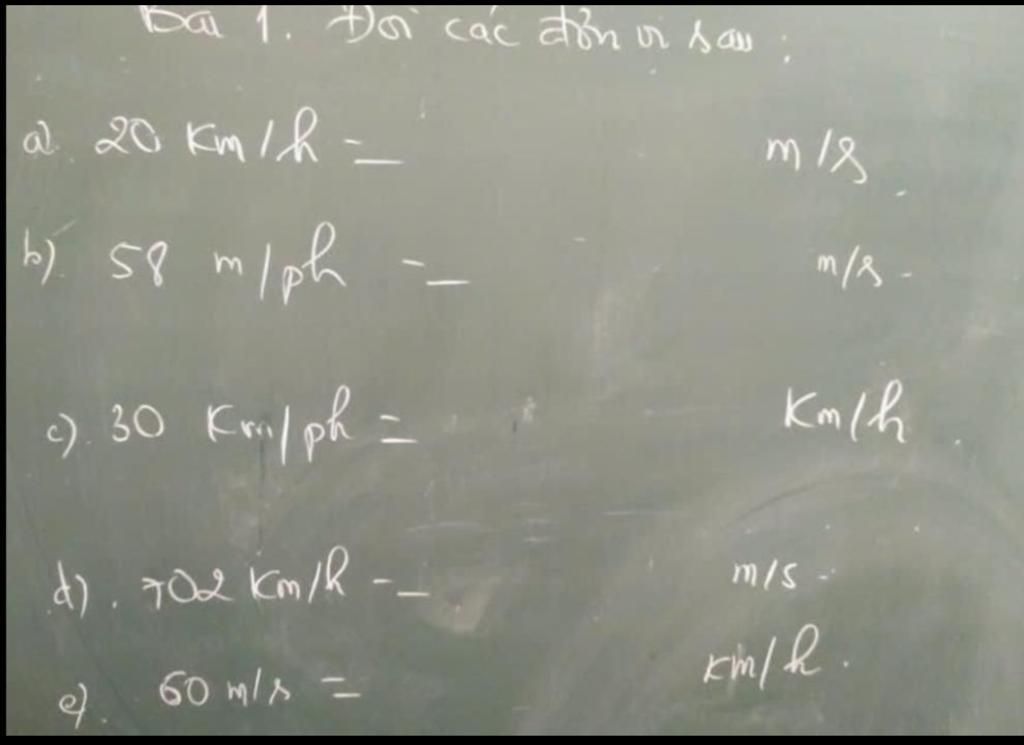 Bài 1. Đổi các đơn vị sau:
a). 20 Km/h = m/s.
b). 58 m/ph = m/s.
c). 30 Km/ph = Km/h.
d). 702 Km/h = m/s.
e). 60 m/s = km/h.